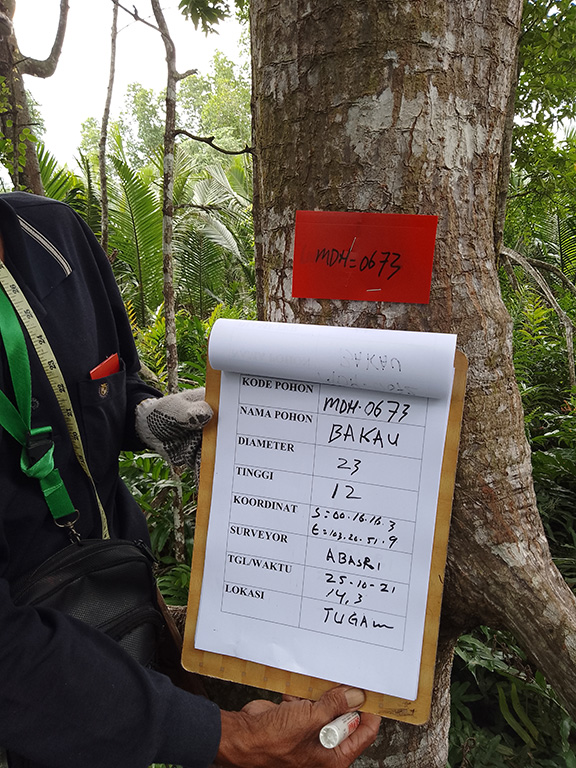 MDH=0673
BAKAU
KODE POHON MDH-0673
NAMA POHON BAKAU
DIAMETER 23
TINGGI 12
KOORDINAT S=00.16.16.3
E=103.26.51.9
SURVEYOR ABASRI
TGL/WAKTU 25-10-21
14,3
LOKASI TUGAM